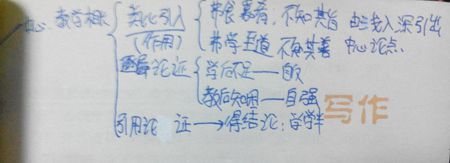 中心：教学相长
类比引入
（作用）
弗食嘉肴，不知其旨
弗学至道 不知其善
由浅入深引出
中心论点.
论证
学后知不足——自反
教后知困——自强
引用论 证→得结论：学学半
写作